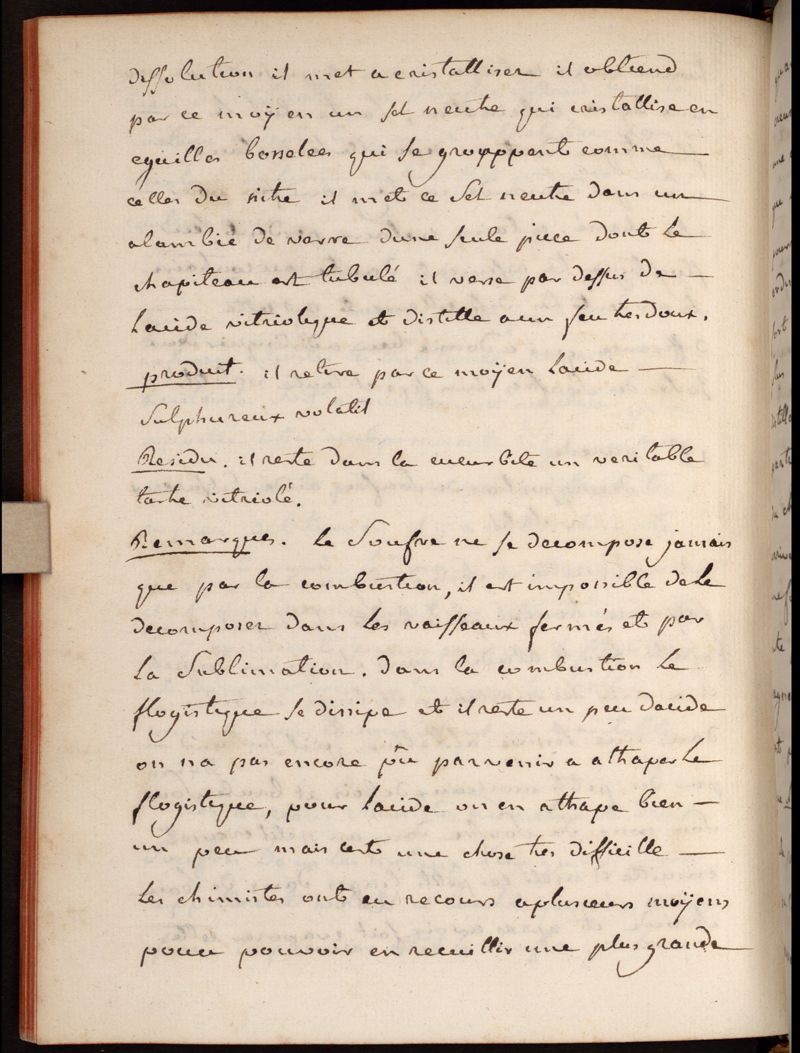 dissolution il met a cristalliser il obtiend
par ce moÿen un sel neutre qui cristallise en
eguilles bosselees qui se groupppent comme
celles du nitre il met ce sel neutre dans un
alambic de verre dune seule piece dont le
chapiteau est tubulé il verse par dessus de
lacide vitriolique et distille a un feu tres doux.
produit. il retire par ce moÿen lacide
sulphureux volatil
Residu. il reste dans la cucurbite un veritable
tartre vitriolé.
Remarques. le Soufre ne se decompose jamais
que par la combustion, il est impossible de le
decomposer dans les vaisseaux fermés et par
la Sublimation. dans la combustion le
flogistique se dissipe et il reste un peu dacide
on na pas encore pu parvenir a attraper le
flogistique, pour lacide on en attrape bien
un peu mais cest une chose tres difficille
les chimistes ont eu recours a plusieurs moÿens
pour pouvoir en recuillir une plus grande